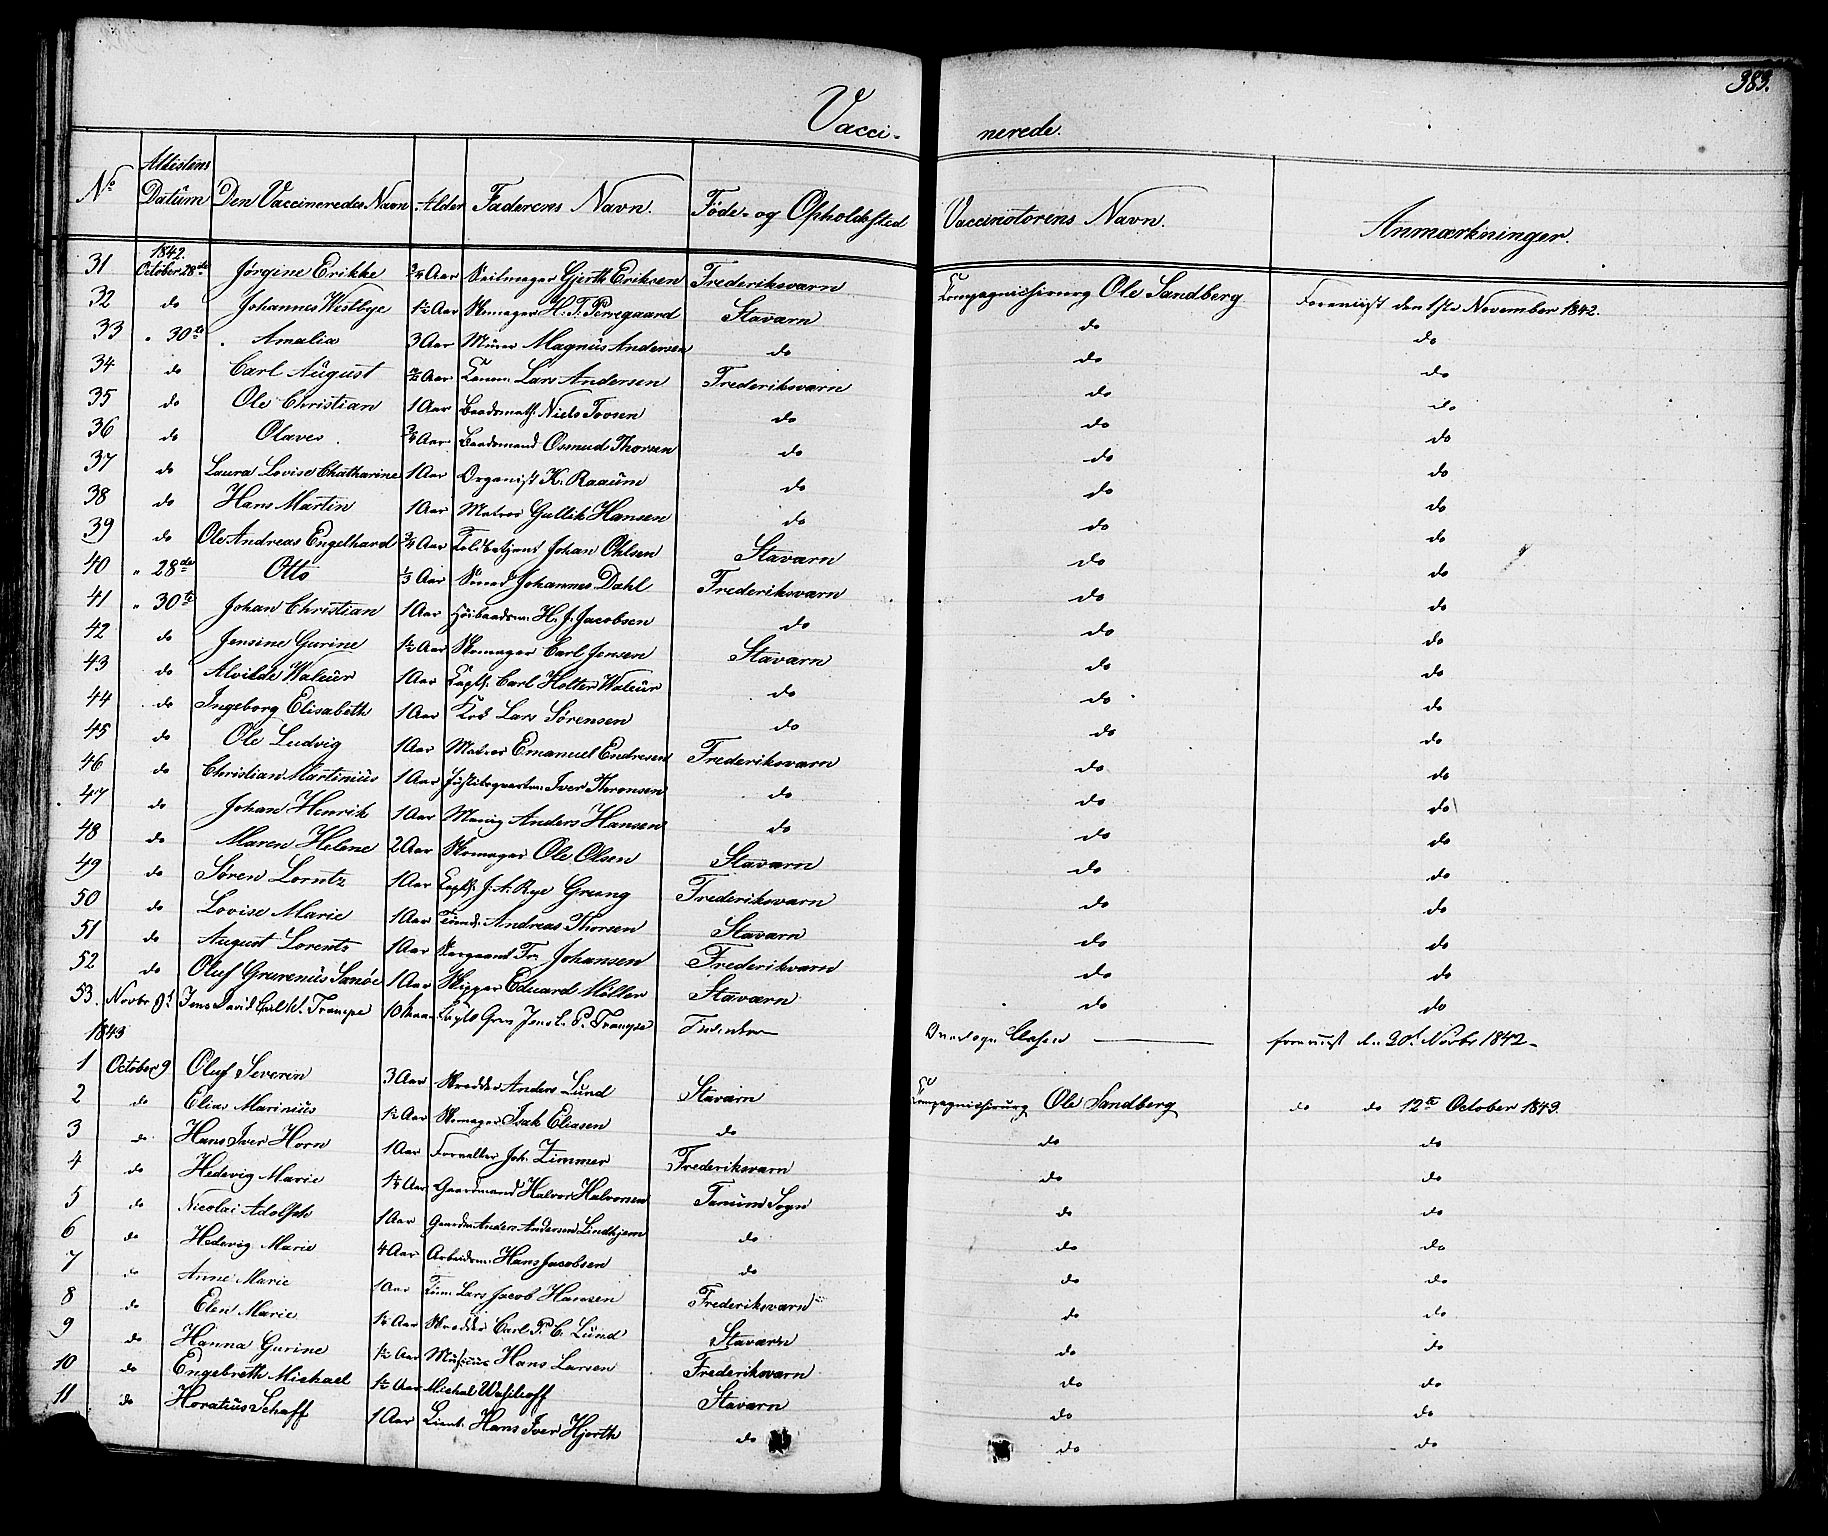 383.
Vacci- nerede.
No Attestens Datum Den Vaccineredes Navn Alder Faderens Navn. Føde- og Opholdssted Vaccinatorens Navn. Anmærkninger.
1842.
31 October 28de Jørgine Erikke 3/4 Aar Seilmager Gjerth Eriksen Frederiksværn Compagnichirurg Ole Sandberg Foreviist den 1ste November 1842.
32 do Johannes Westbye 1½ Aar Skomager H. T. Perregaard Staværn do do
33 " 30te Amalia 3 Aar Murer Magnus Andersen do do do
34 do Carl August Aar Lars Andersen Frederiksværn do do
35 do Ole Christian 1 Aar Baadsmath: Niels Tovsen do do do
36 do Olaves 3/4 Aar Baadsmand Osmud Thorsen do do do
37 do Laura Lovise Chatharine 1 Aar Organist K. Raaum do do do
38 do Hans Martin 1 Aar Matros Gullik Hansen do do do
39 do Ole Andreas Engelhard 3/4 Aar Toldbetjent Johan Ohlsen Staværn do do
40 " 28de Otto 1/3 Aar Smed Johannes Dahl Frederiksværn do do
41 " 30te Johan Christian 1 Aar Høibaadsm. H. J. Jacobsen do do do
42 do Jensine Gurine 1½ Aar Skomager Carl Jensen Staværn do do
43 do Alvilde Waleur 1 Aar Capt. Carl Holter Waleur do do do
44 do Ingeborg Elisabeth 1 Aar Lars Sørensen do do do
45 do Ole Ludvig 1 Aar Matros Emanuel Endresen Frederiksværn do do
46 do Christian Martinius 1 Aar Iver Thoronsen do do do
47 do Johan Henrik 1 Aar Menig Anders Hansen do do do
48 do Maren Helene 2 Aar Skomager Ole Olsen Staværn do do
49 do Søren Lorntz 1 Aar Capt. J. A. Rye Greung Frederiksværn do do
50 do Lovise Marie 1 Aar Tømd. Andreas Thorsen Staværn do do
51 do August Lorentz 1 Aar Sergeant Fr. Johansen Frederikværn do do
52 do Oluf Grurenius Sanöe 1 Aar Skipper Eduard Möller Staværn do do
53. Novbr 9d Jens David Carl W. Trampe 10 Maan Capt: Grev Jens C. P. Trampe Clasen foreviist den 20d Novbr 1842.
1843
1 October 9 Oluf Severin 3 Aar Skredder Anders Lund Staværn Compagnichirurg Ole Sandberg do do 12te October 1843.
2 do Elias Marinius 1½ Aar Skomager Isak Eliasen do do do
3 do Hans Iver Horn 1 Aar Forvalter Joh. Zimmer Frederiksværn do do
4 do Hedevig Marie 1½ Aar Gaardmand Halvor Halvorsen Tanum Sogn do do
5 do Nicolai Adolph 1 Aar Gaardm Anders Andersen Lindhjem do do do
6 do Hedevig Marie 4 Aar Arbeidsm. Hans Jacobsen do do do
7 do Anne Marie 1 Aar Tøm. Lars Jacob Hansen Frederiksværn do do
8 do Elen Marie 1½ Aar Skredder Carl P. C. Lund Staværn do do
9 do Hanna Gurine 1½ Aar Musicus Hans Larsen Frederiksværn do do
10 do Engebreth Michael 1½ Aar Michal Staværn do do
11 do Horatius Schaff 1 Aar Lieut. Hans Iver Hjorth do do do